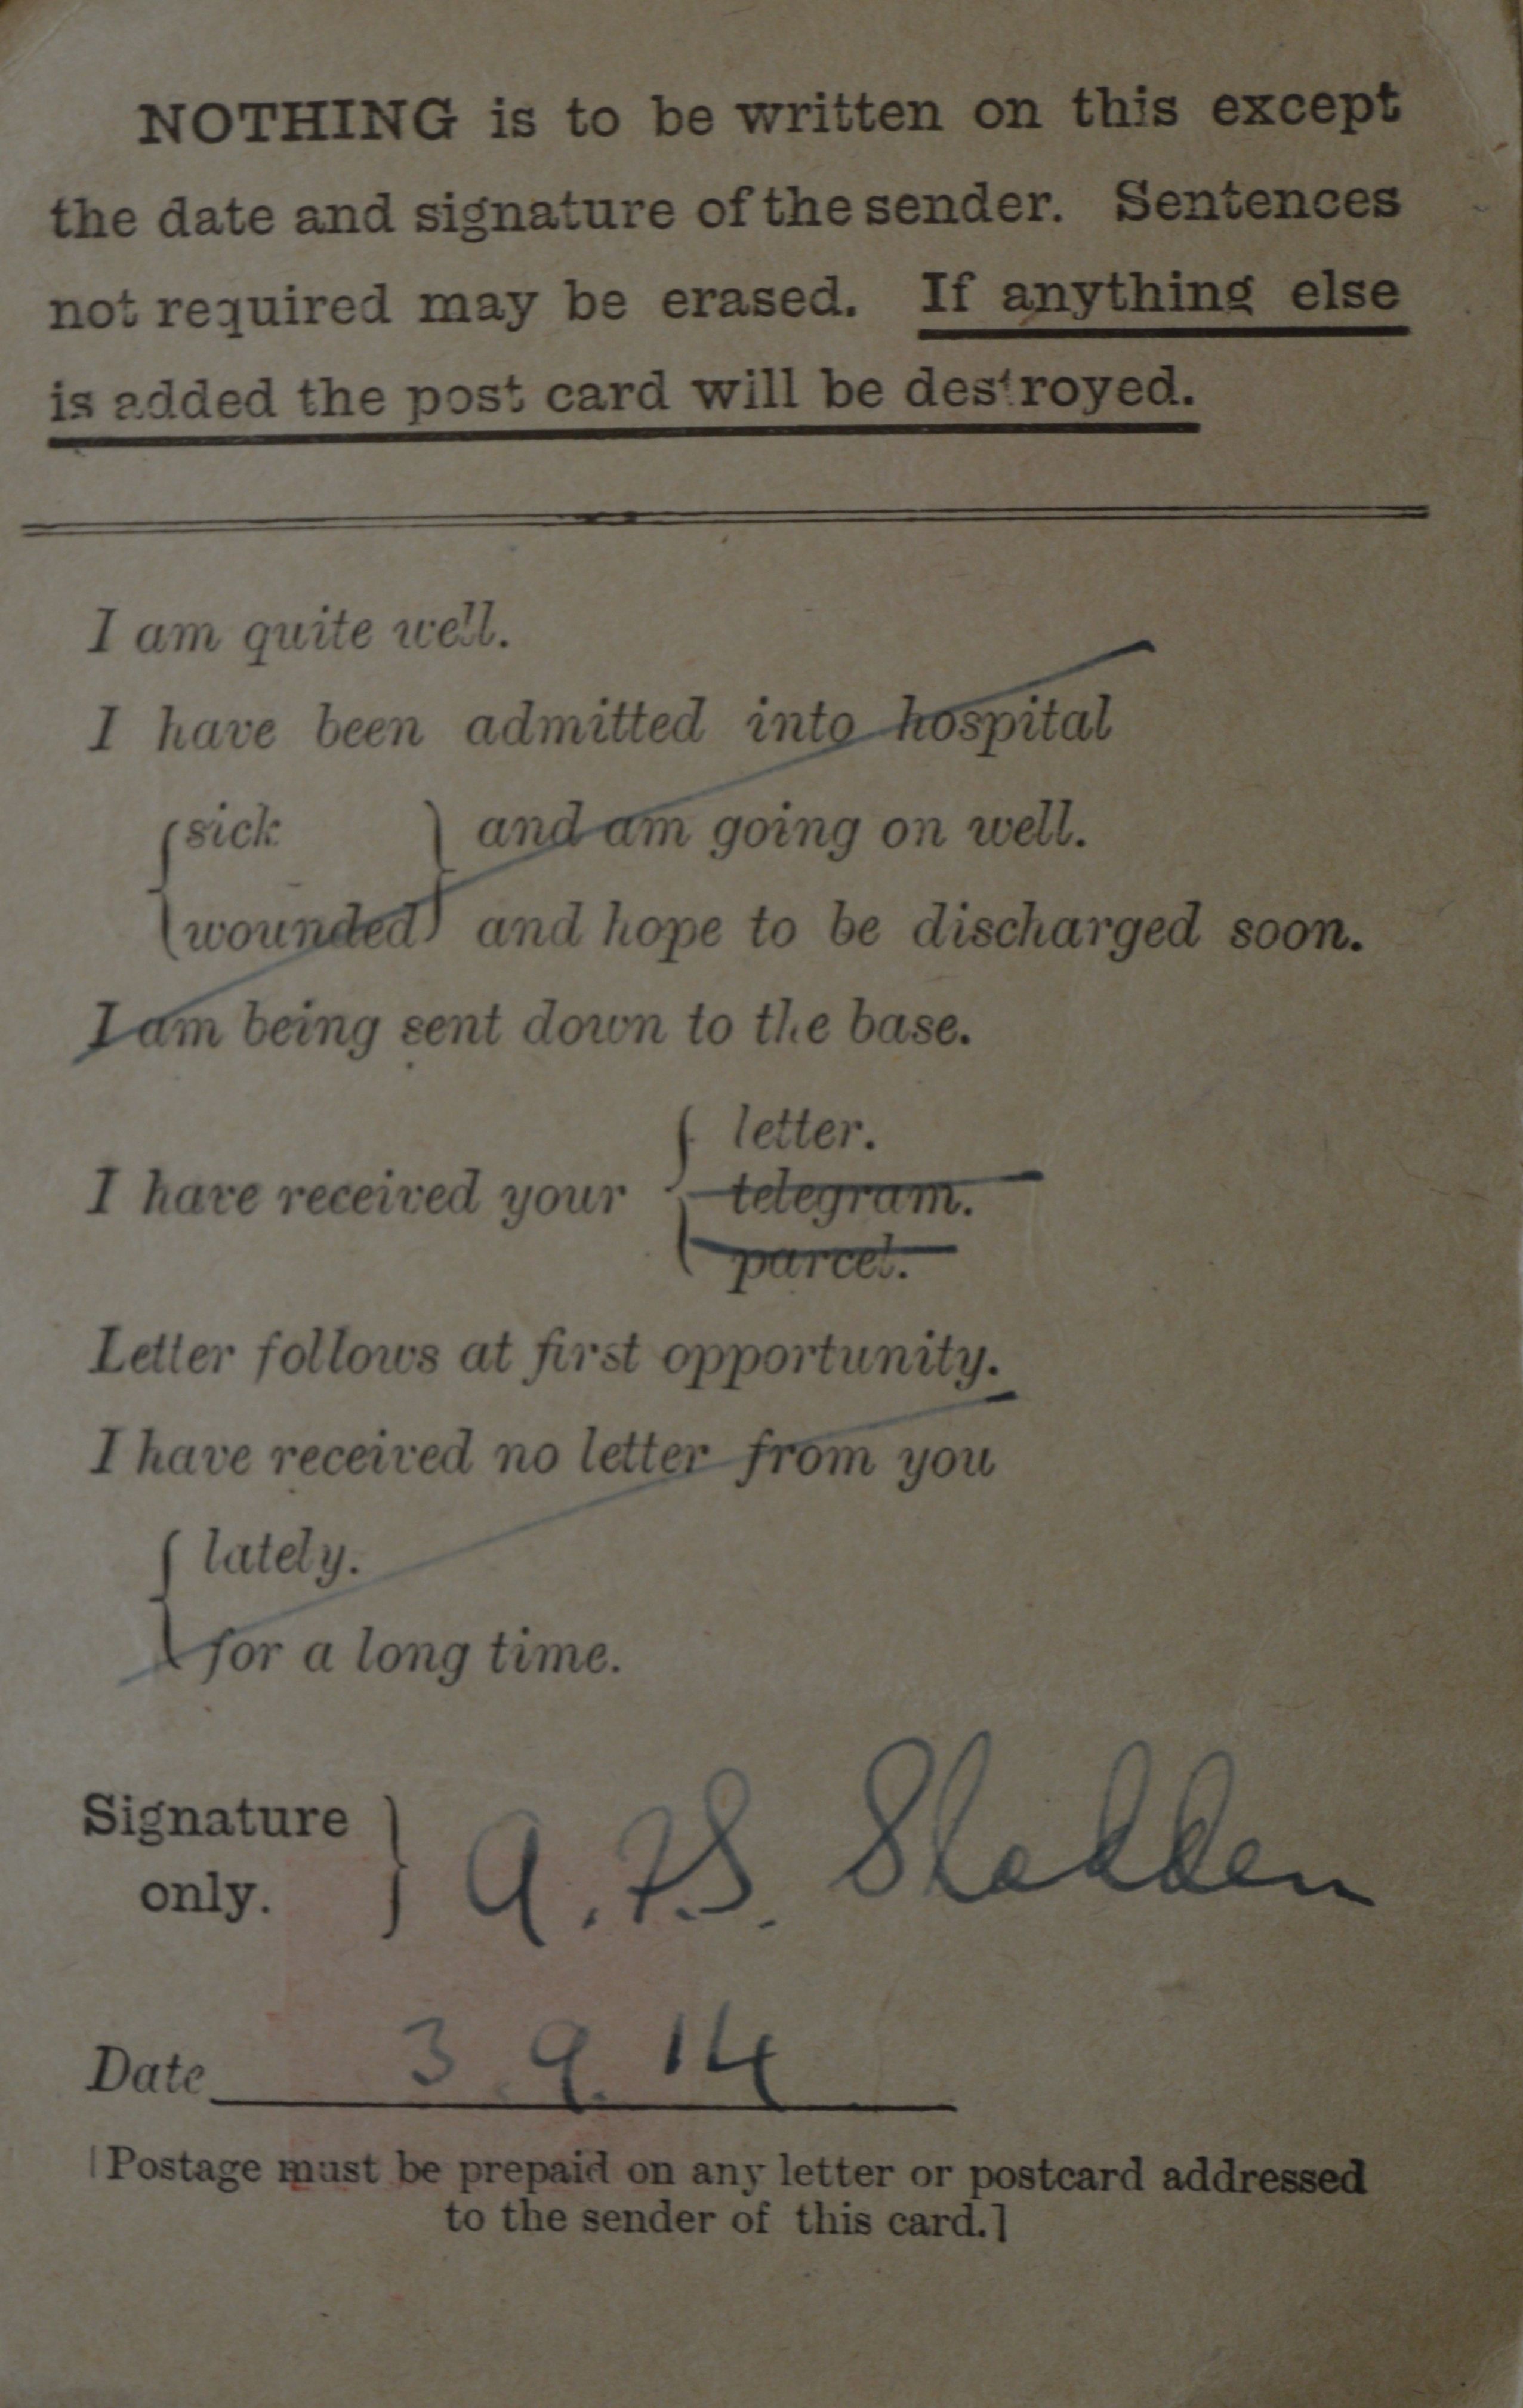 NOTHING is to be written on this except
the date and signature of the sender. Sentences
not required may be erased. If anything else
is added the post card will be destroyed.
I am quite well.
I have been admitted into hospital
sick
and am going on well.
wounded
and hope to be discharged soon.
I am being sent down to the base.
letter.
I have received your
telegram.
parcel.
Letter follows at first opportunity.
I have received no letter from you
lately.
for a long time.
Signature
only.
A. F. S.
Date 3. 9. 14
[Postage must be prepaid on any letter or postcard addressed
to the sender of this card.]